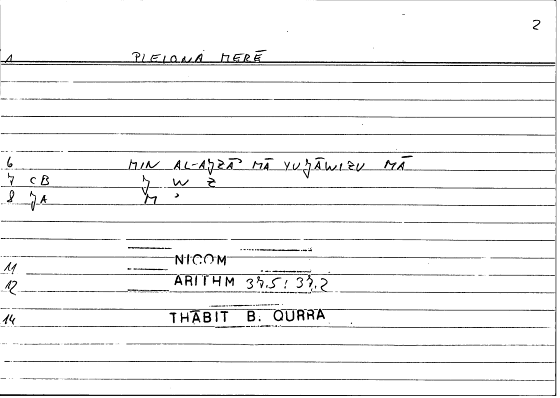 2
1 PLEIONA MERĒ
6 MIN AL-AǧZĀʾ MĀ YUǧĀWIZU MĀ
7 CB ǧ W Z
8 ǧA M ʾ
NICOM
11
12 ARITHM 37.5; 37.2
14 THĀBIT B. QURRA